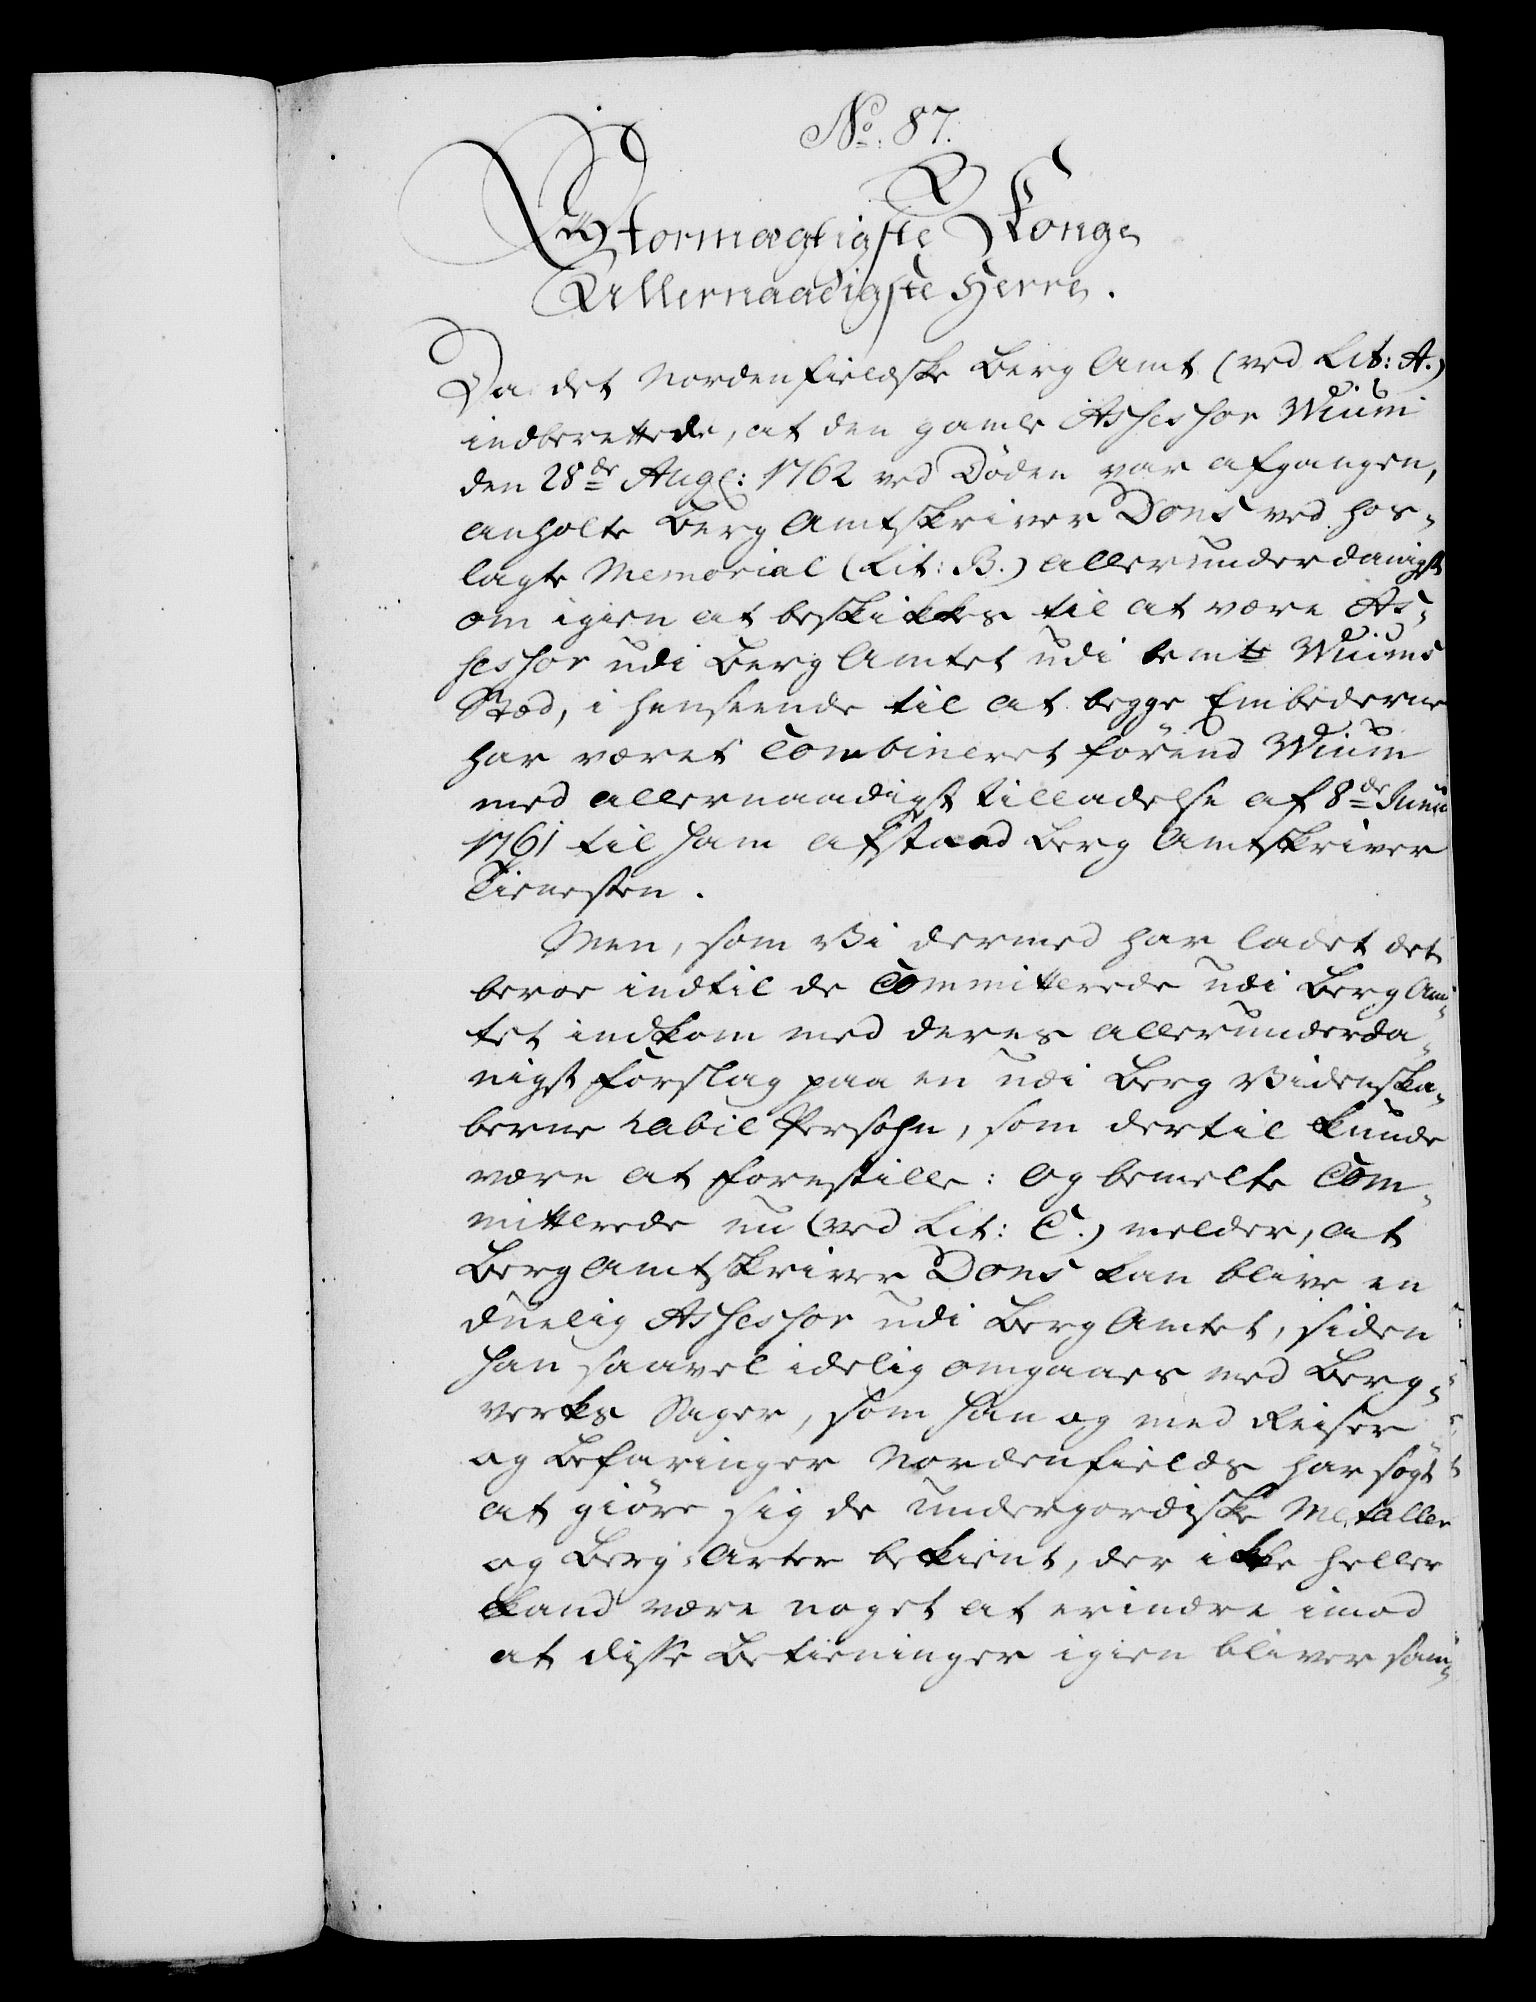 No: 87.
Stormægtigste Konge
Allernaadigste Herre.
Da det Nordenfieldske Berg Amt (ved Lit: A.)
indberettede, at den gamle Assessor Wium
den 28de Aug: 1762 ved Døden var afgangen,
anholte Berg Amtskriver Dons ved hos-
lagte Memorial (Lit: B.) allerunderdanigst
om igien at beskikkes til at være As-
sessor udi Berg Amtet udi bemte Wiums
Stæd, i henseende til at begge Embederne
har været Combineret førend Wium
med allernaadigst tilladelse af 8de Junii
1761 til ham afstaaed Berg Amtskriver
Tienesten.
Men, som Vi dermed har ladet det
beroe indtil de Committerede udi Berg Am-
tet indkom med deres allerunderda-
nigst Forslag paa en udi Berg Videnska-
berne habil Persohn, som dertil kunde
være at forestille: og bemelte Com-
mitterede nu (ved Lit: C.) melder, at
Berg Amtskriver Dons kan blive en
duelig Assessor udi Berg Amtet, siden
han saavel idelig omgaaes med Berg-
verks Sager, som han og med Reiser
og Befaringer Nordenfields har søgt
at giøre sig de undergordiske Metaller
og Berg-Arter bekient, der ikke heller
kand være noget at erindre imod
at disse Betieninger igien bliver sam-